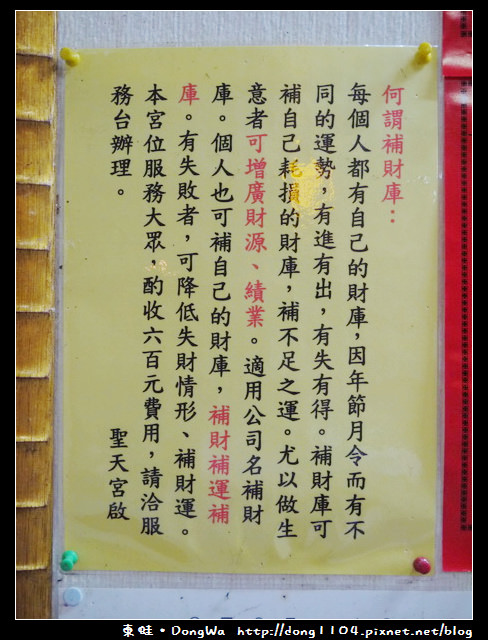 何謂補財庫：
每個人都有自己的財庫，因年節月令而有不
同的運勢，有進有出，有失有得。補財庫可
補自己耗損的財庫，補不足之運。尤以做生
意者可增廣財源、績業。適用公司名補財
庫。個人也可補自己的財庫，補財補運補
庫。有失敗者，可降低失財情形、補財運。
本宮位服務大眾，酌收六百元費用，請洽服
務台辦理。
聖天宮啟
東蛙。DongWa http://dong1104.pixnet.net/blog